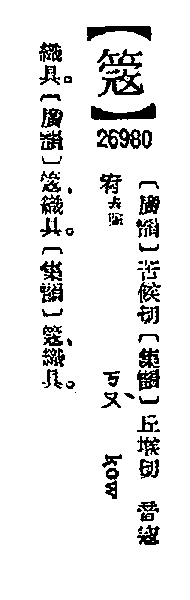 【簆】
26980
〔廣韻〕苦候切〔集韻〕丘堠切 音寇
宥去聲 ㄎㄡˋ kow
織具。〔廣韻〕簆、織具。〔集韻〕簆、織具。